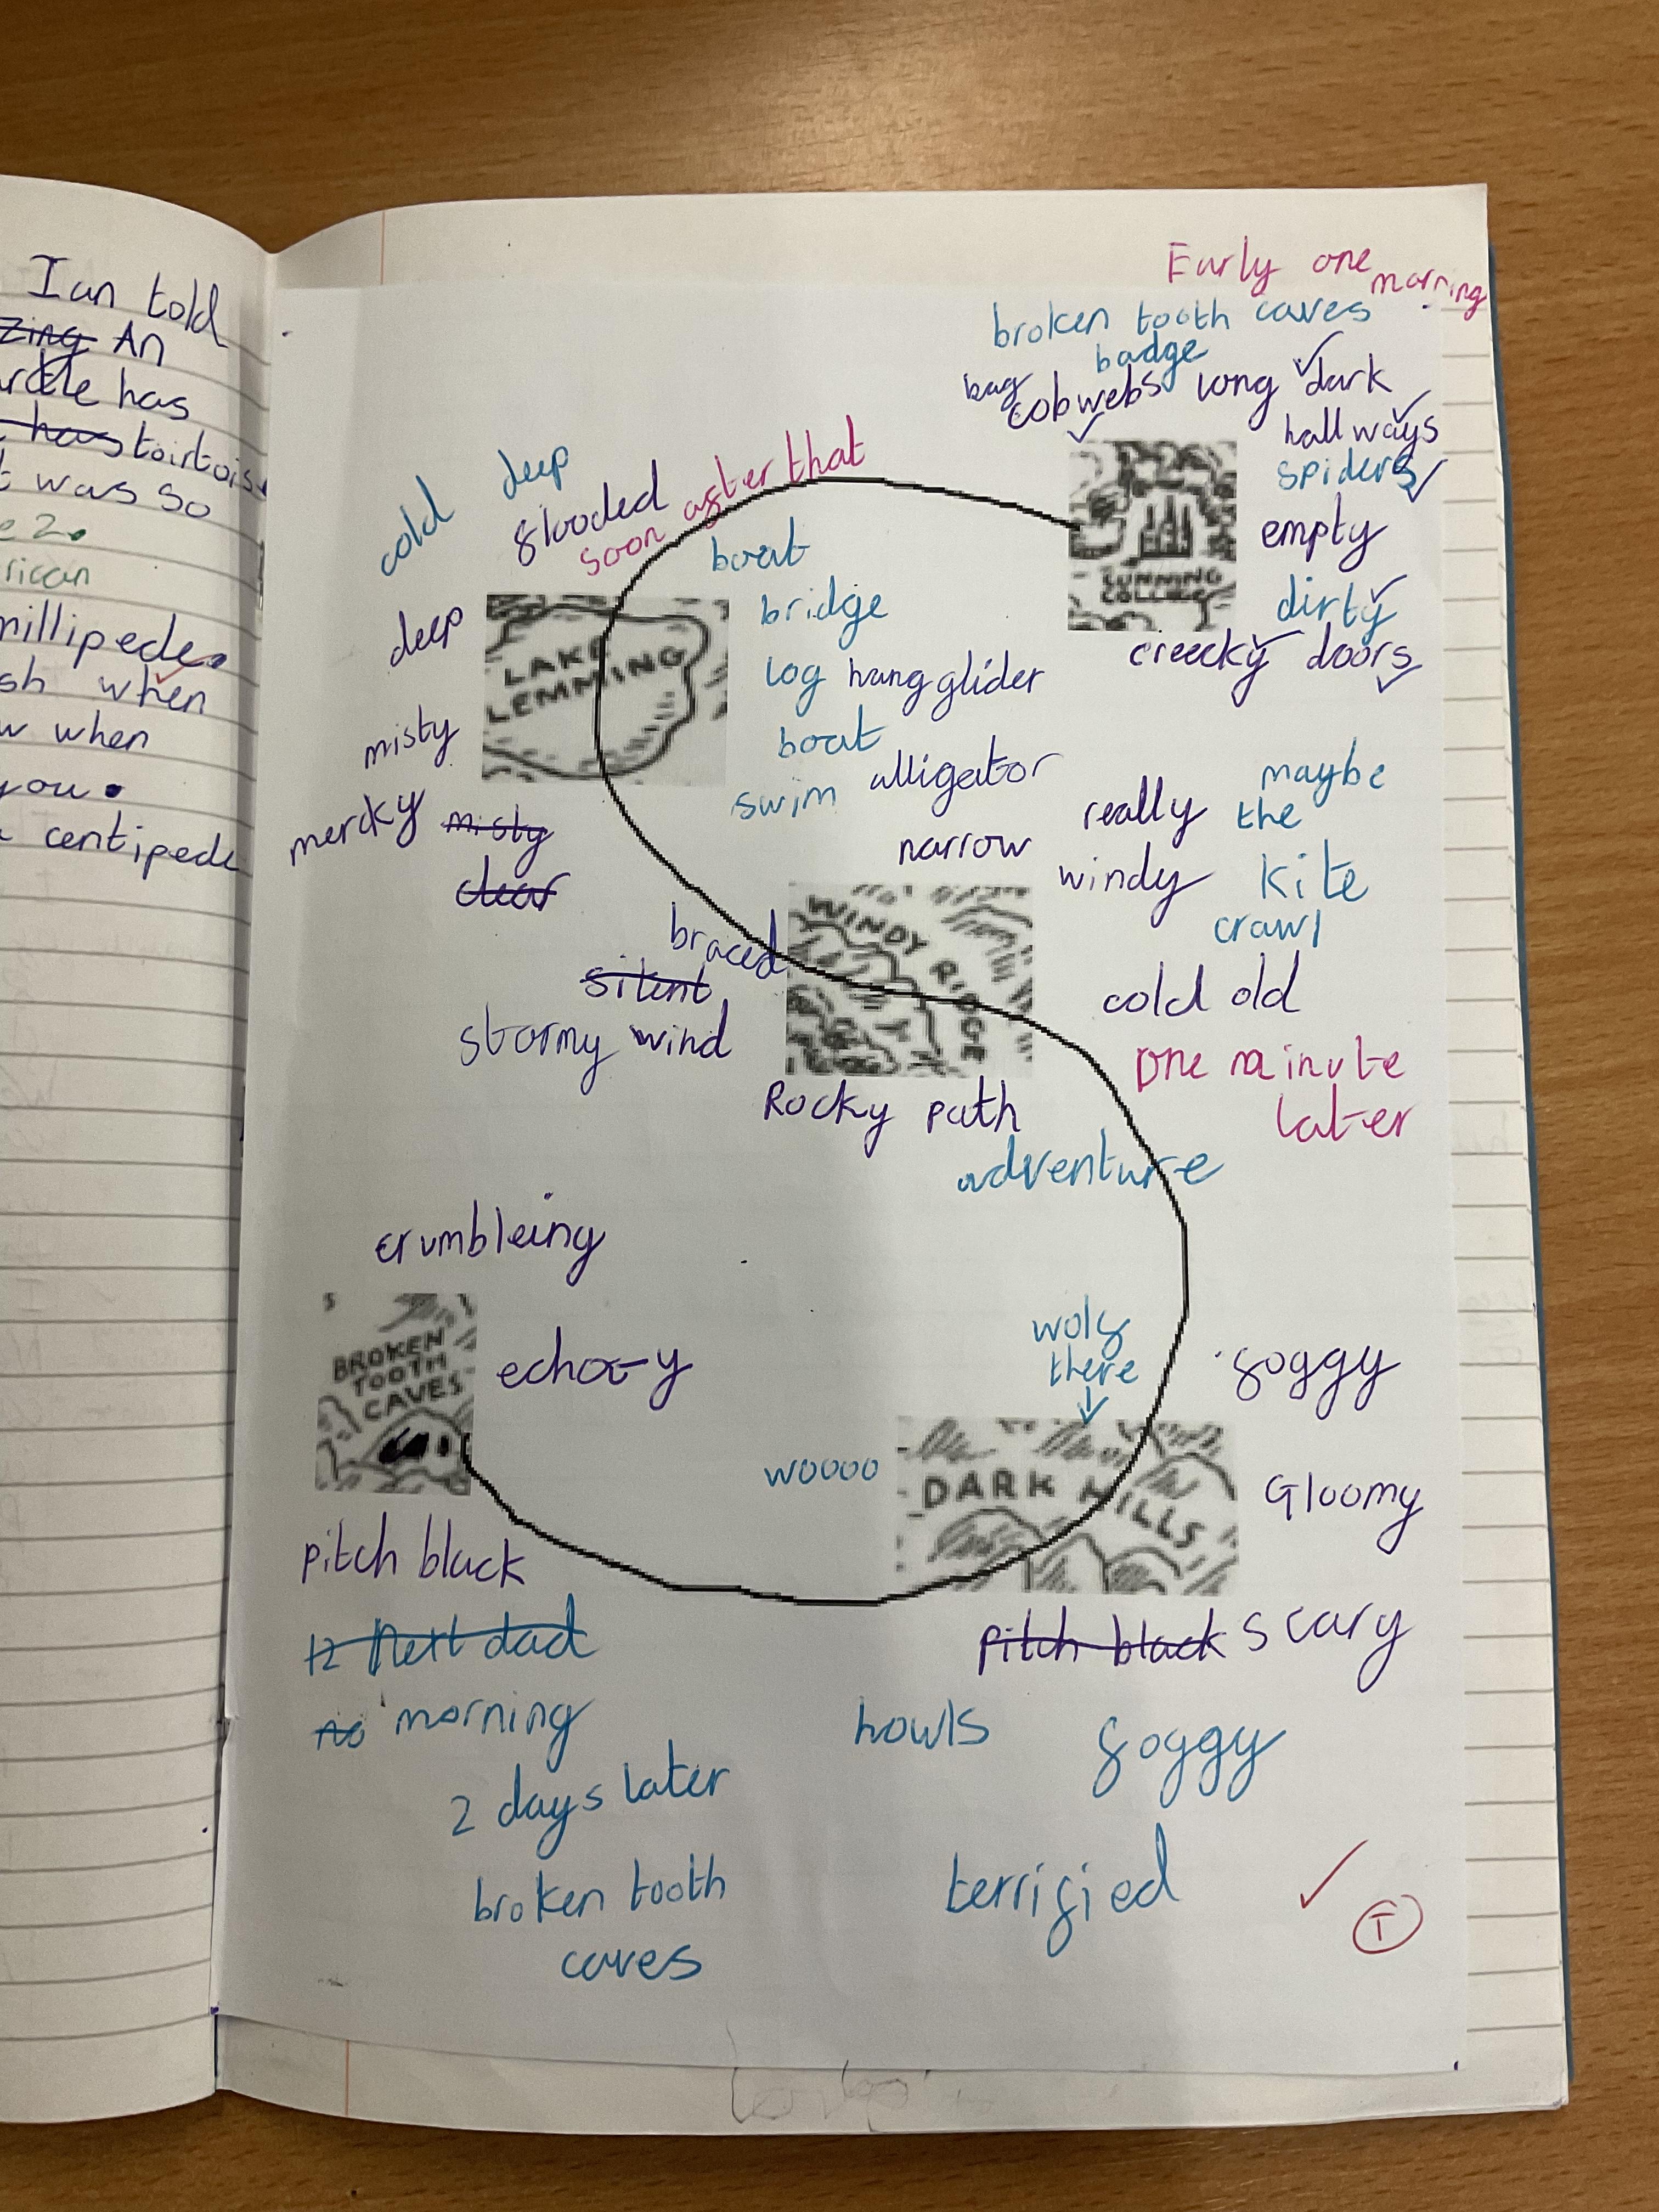 Ian told
zing An
has
has tortois
t was so
e 2.
rican
millipede.
sh when
w when
you.
centipede
Early one morning
broken tooth caves
badge
bag cobwebs long dark
hallways
spiders
empty
dirty
creecky doors
CUNNING
COLLEGE
cold deep
flooded
soon after that
deep
misty
mercky misty
clear
LAKE
LEMMING
boat
bridge
log hang glider
boat
alligator
swim
narrow
really
windy
maybe
the
kite
crawl
WINDY RIDGE
braced
silent
stormy wind
cold old
Rocky path
one minute
later
adventure
crumbleing
BROKEN
TOOTH
CAVES
echo-y
pitch black
Next dad
no morning
2 days later
broken tooth
caves
wolf
there
foggy
woooo
DARK HILLS
Gloomy
pitch black scary
howls
foggy
terrified
T